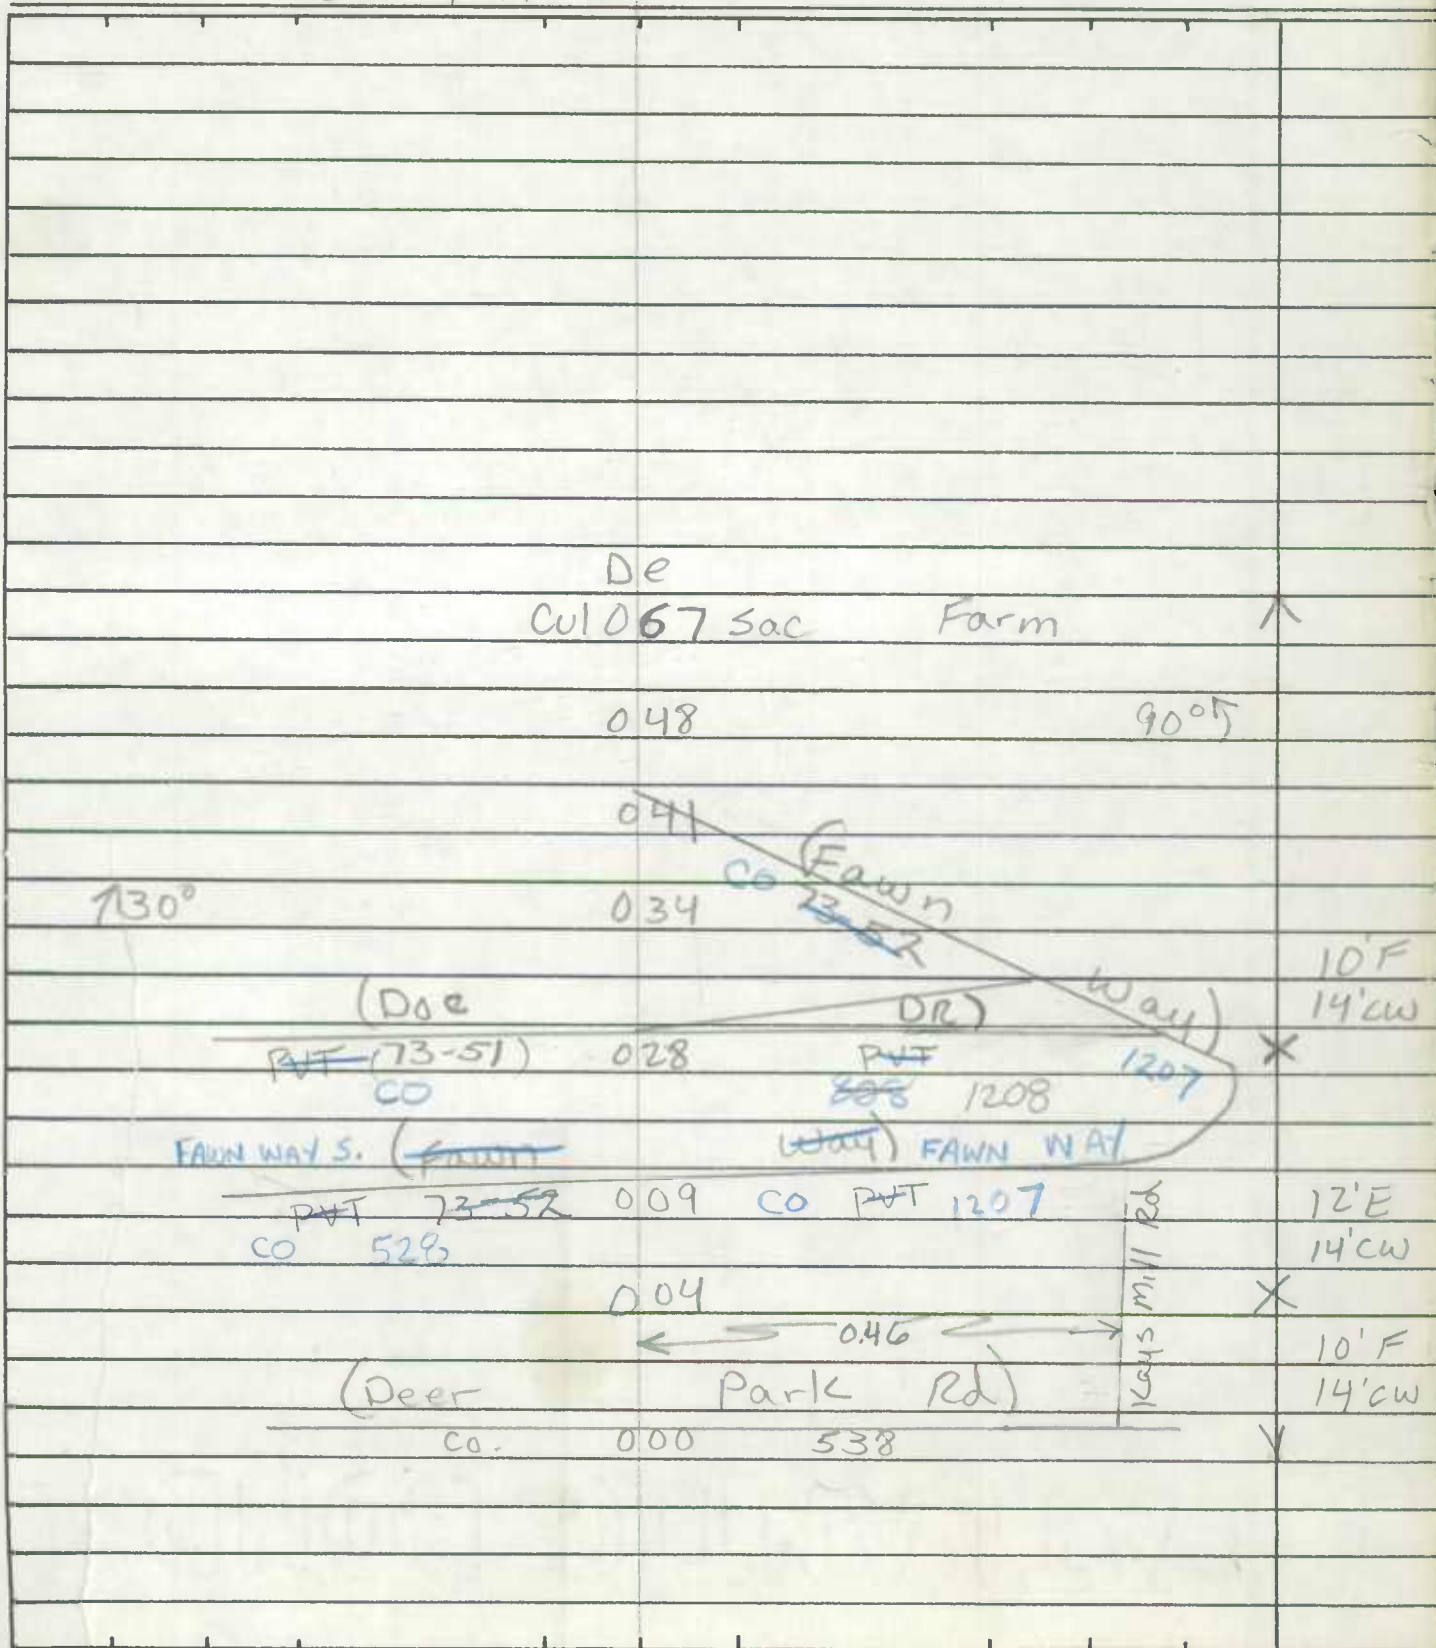 De
Cul 067 Sac Farm
048 90°
041
(Fawn Way)
CO 73-52
30° 034
10'F
14'CW
(Doe DR)
PVT (73-51) 028 PVT 1207
CO 808 1208
FAWN WAY S. (Fawn Way) FAWN WAY
PVT 73-52 009 CO PVT 1207
12'E
CO 528
14'CW
Kays Mill Rd
004
0.46
10'F
(Deer Park Rd)
14'CW
Co. 000 538